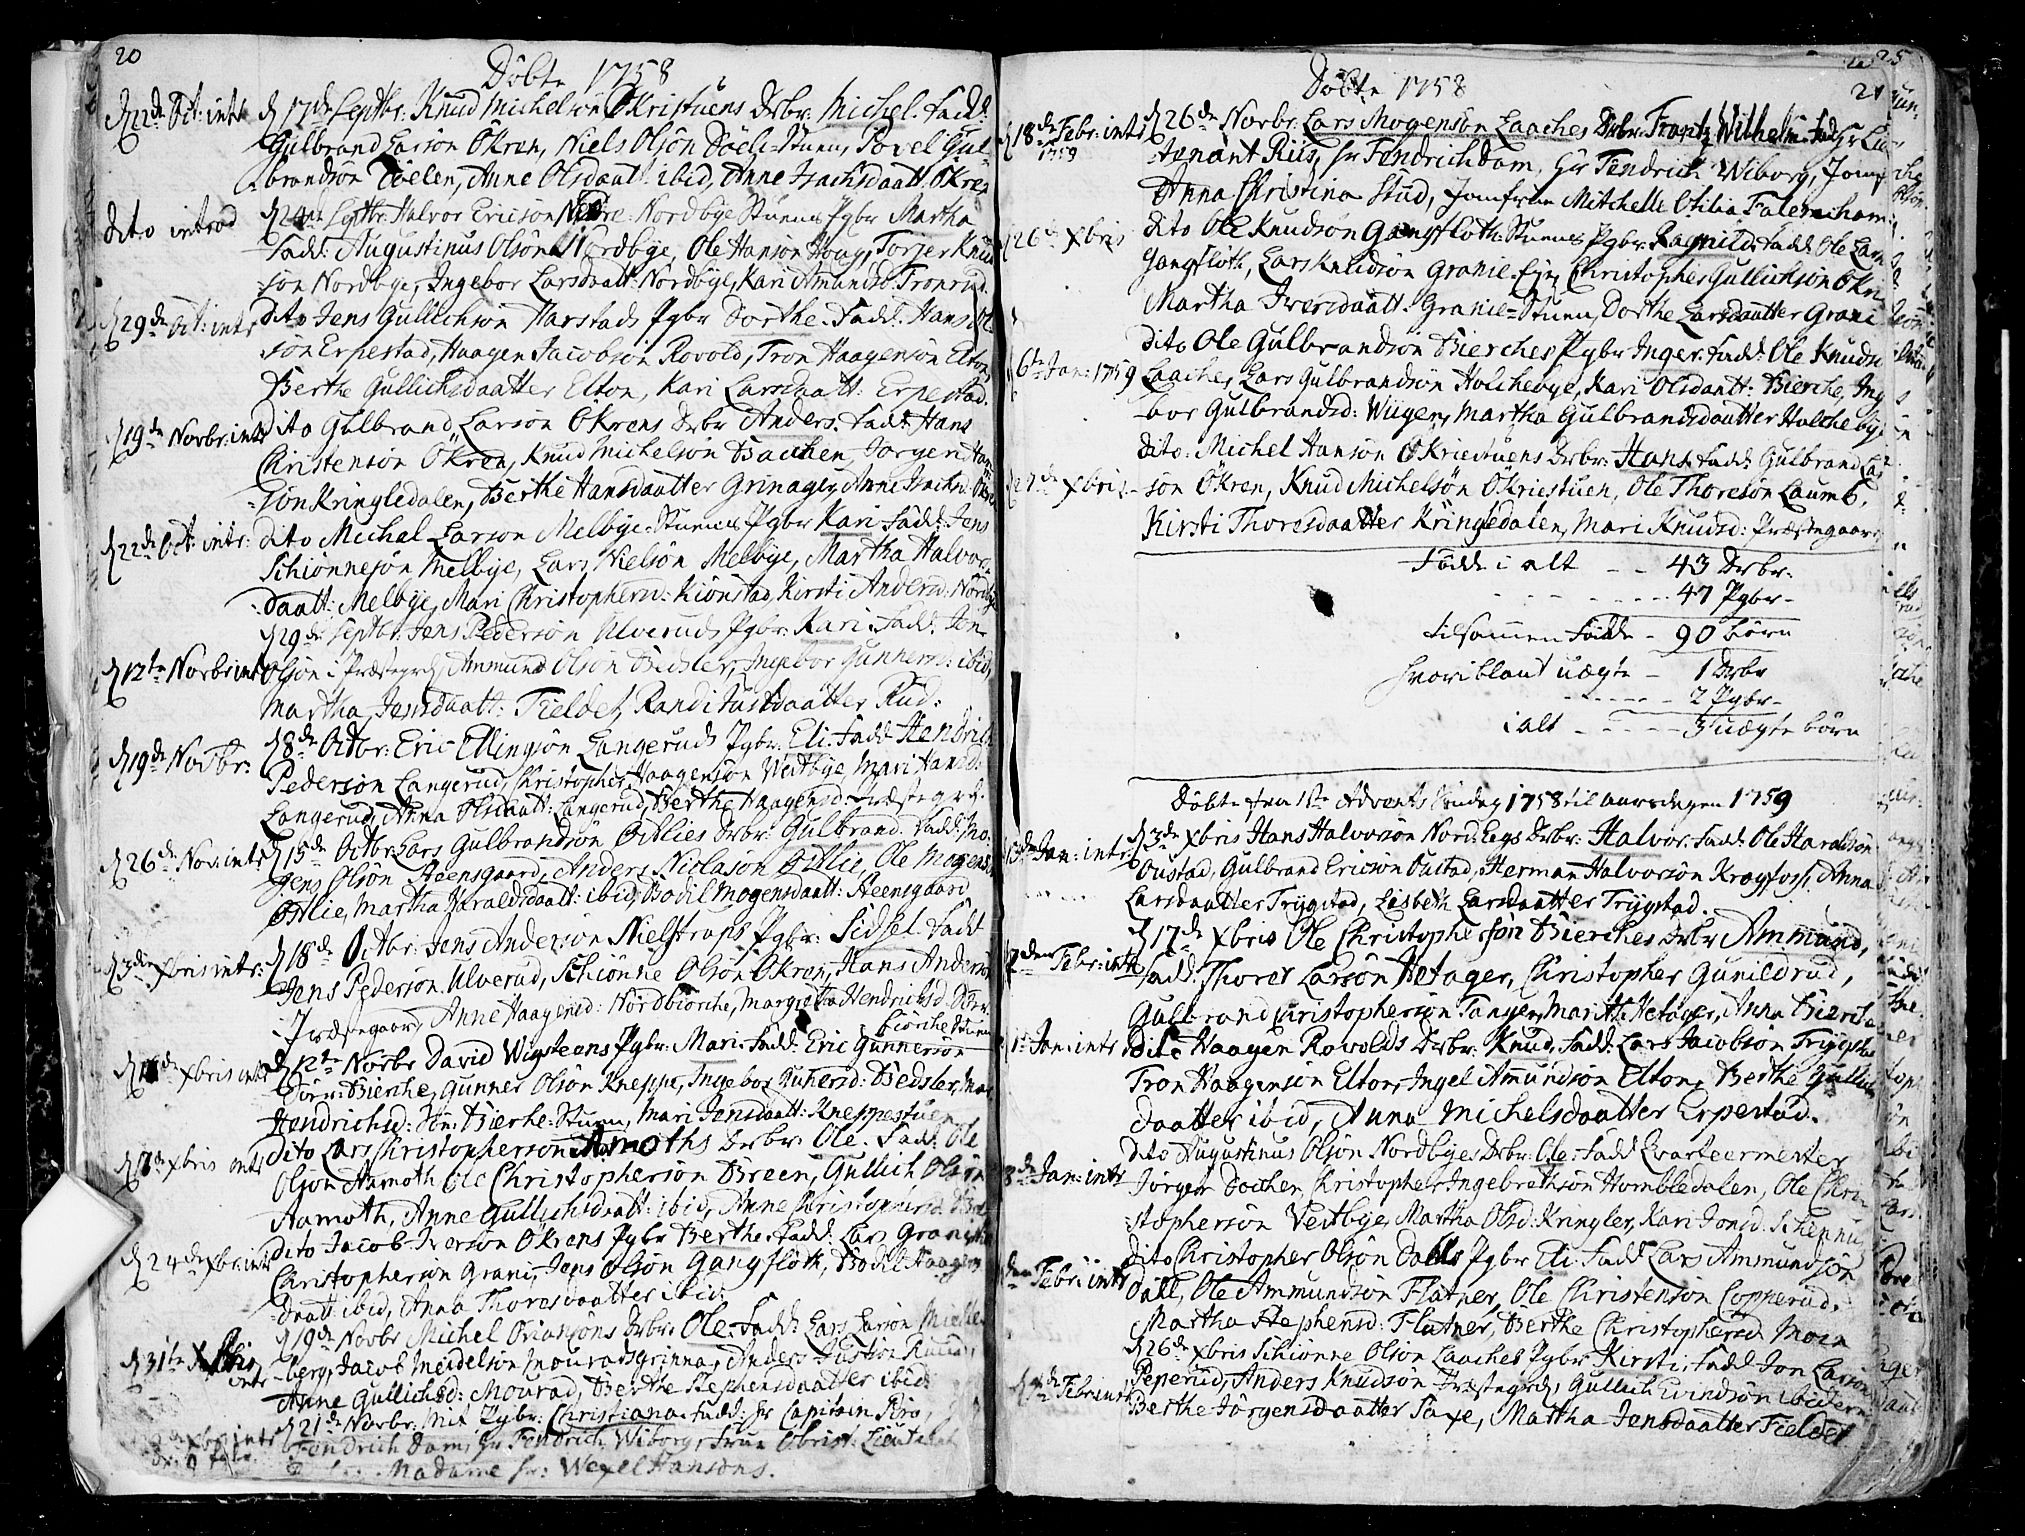 20
Döbte 1758
d 22de Oct: intr. d 17de Septbr: Knud Michelsön Ökristuens Drbr: Michel. Fadd:
Gulbrand Larsön Ökren, Niels Olsön Döeli-Stuen, Povel Gul-
brandsön Döelen, Anne Olsdaatt: ibid, Anne Isachsdaatt: Ökren
dito introd d 24de Septbr: Halvor Ericsön Nedre-Nordbye Stuens Pgbr Martha
Fadd: Augustinus Olsön Nordbye, Ole Hansön Houg, Torjer Knud
sön Nordbye, Ingebor Larsdaatt: Nordbye, Kari Amundsd: Tronrud.
d 29de Oct: intr dito Jens Gullichsön Harstads Pgbr Dorthe. Fadd: Hans Ol
sön Erpestad, Haagen Jacobsön Rovold, Tron Haagensön Elton,
Berthe Gullichsdaatter Elton, Kari Larsdaatt: Erpestad.
d 19de Novbr: intr dito Gulbrand Larsön Ökrens Drbr Anders. Fadd: Hans
Christensön Ökren, Knud Michelsön Bachen, Jörgen Han
sön Kringledalen, Berthe Hansdaatter Grinager, Anne Isachsd: Ökren
d 22de Oct: intr: dito Michel Larsön Melbye-Stuens Pgbr Kari. Fadd: Jens
Schiönnesön Melbye, Lars Nielsön Melbye, Martha Halvors
daatt: Melbye, Mari Christophersd: Kiönstad, Kirsti Andersd: Nordbye
d 29de Septbr: Jens Pedersön Ulveruds Pgbr: Kari. Fadd: Jon
d 12te Novbr: intr Olsön i Præstegrd, Ammund Olsön Bedsler, Ingebor Gunnersd: ibid,
Martha Jensdaatt: Fieldet, Randi Justdaatter Rud:
d 19de Novbr: d 8de Octbr: Eric Ellingsön Langeruds Pgbr: Eli. Fadd: Hendrich
Pedersön Langerud, Christopher Haagensön Vestbye, Mari Hansd:
Langerud, Anna Olsdaatt: Langerud, Berthe Haagensd: Præstegrd.
d 26de Nov: intr d 15de Octbr: Lars Gulbrandsön Östlies Drbr: Gulbrand. Fadd: Mo-
gens Olsön Steensgaard, Anders Niclasön Östlie, Ole Mogens
Östlie, Martha Haraldsdaatt: ibid, Bodil Mogensdaatt: Steensgaard
d 3die Xbris intr: d 18de Octbr: Jens Andersön Nielstrops Pgbr: Sidsel. Fadd
Jens Pedersön Ulverud, Schiönne Olsön Ökren, Hans Andersön
Præstegaard, Anne Haagensd: Nordbiörche, Margretha Hendrichsd: Sör-
biörche Stuen
d Xbris intr d 12te Novbr David Wigsteens Pgbr: Mari. Fadd: Eric Gunnersön
Sörr: Bierche, Gunner Olsön Kneppe, Ingebor Gunersd: Bedsler, Mar
Hendrichsd: Sör: Bierche-Stuen, Mari Jensdaatt: Kneppestuen
d 17de Xbris intr dito Lars Christophersön Aamoths Drbr: Ole. Fadd: Ole
Olsön Aamoth Ole Christophersön Breen, Gullich Olsön
Aamoth, Anne Gullichsdaatt: ibid, Anne Christophersd: Bre
d 24de Xbr: intr dito Jacob Iversön Ökrens Pgbr Berthe. Fadd: Lars Granie
Christophersön Grani, Jens Olsön Gangflöth, Bodil Haagens
daatt: ibid, Anna Thoresdaatter ibid.
d 19de Novbr Michel Briansöns Drbr: Ole. Fadd: Lars Larsön Michel
d 31te Xbris intr berg, Jacob Meidelsön Mouradsgrinna, Anders Justsön Ruud,
Anne Gullichsd: Mourad, Berthe Stephensdaatter ibid:
d 21de Novbr: Mit Pgbr: Christiana. Fadd: Hr Capitain Siro,
Xbr: intr Fendrich Dam, Hr Fendrich Wiborg, Frue Obrist Lieutenant
Madame Hr: Wexel Hansöns.
25
21
Döbte 1758
d 18de Febr: intr 1759 d 26de Novbr: Lars Mogensön Laaches Drbr: Frantz Wilhelm. Fad: Hr Lieu
tenant Riis, Hr Fendrich Dam, Hr Fendrich Wiborg, Jomf
Anna Christina Stud, Jomfrue Mitchelle Otilia Falenicham:
d 26de Xbris dito Ole Knudsön Gangflöth-Stuens Pgbr: Ragnild. Fadd: Ole Lars
Gangflöth, Lars Knudsön Granie-Eje, Christopher Gullichsön Ökre
Martha Iversdaatt: Granie-Stuen, Dorthe Larsdaatter Grani
dito Ole Gulbrandsön Bierches Pgbr Inger. Fadd: Ole Knuds
6te Jan: 1759 Laache, Lars Gulbrandsön Holchebye, Kari Olsdaatt: Bierche, Inge
bor Gulbrandsd: Wiiger, Martha Gulbrandsdaatter Holchebye
dito: Michel Hansön Ökriestuens Drbr: Hans. Fadd: Gulbrand Lar
2de Xbris sön Ökren, Knud Michelsön Ökriestuen, Ole Thoresön Laumb,
Kirsti Thoresdaatter Kringledalen, Mari Knudsd: Præstegaard
Födde i alt - - 43 Drbr:
- - - - - 47 Pgbr-
tilsammen Födde - 90 börn
hvoriblant uægte - 1 Drbr
- - - - - 2 Pgbr-
i alt - - - - - 3 uægte börn
Döbte fra 1ste Advents Söndag 1758 til aarsdagen 1759
Jan: intr: d 3de Xbris Hans Halvorsön Nord-Eegs Drbr: Halvor. Fadd: Ole Haraldsön
Oustad, Gulbrand Ericsön Oustad, Herman Halvorsön Krogfoss, Anna
Larsdaatter Trygstad, Lisbeth Larsdaatter Trygstad.
d 17de Xbris Ole Christophersön Bierches Drbr Ammund,
2den Febr: intr Fadd: Thorer Larsön Hetager, Christopher Gunildrud,
Gulbrand Christophersön Tangen, Marith Hetager, Anna Bierche
1te Jan: intr dito Haagen Rowolds Drbr: Knud. Fadd: Lars Jacobsön Trygsta
Tron Haagensön Elton, Ingel Amundsön Elton, Berthe Gullichs
daatter ibid, Anna Michelsdaatter Erpestad.
dito Augustinus Olsön Nordbyes Drbr: Ole. Fadd Qvarteermester
8de Jan: intr Jörgen Dochen, Christopher Ingebrethsön Hombledalen, Ole Chri
stophersön Vestbye, Martha Olsd: Kringler, Kari Jonsd: Schennu
dito Christopher Olsön Dalls Pgbr Eli. Fadd Lars Ammundsön
den Febr: intr Dall, Ole Ammundsön Flatner, Ole Christensön Copperud.
Martha Stephensd: Flatner, Berthe Christophersd: Moen
d 26de Xbris Schiönne Olsön Laaches Pgbr Kirsti. Fadd Jon Larsön
d de Febr: intr Peperud, Anders Knudsön Præstegrd, Gullich Evindsön ibidem,
Berthe Jörgensdaatter Saxe, Martha Jensdaatter Fieldet